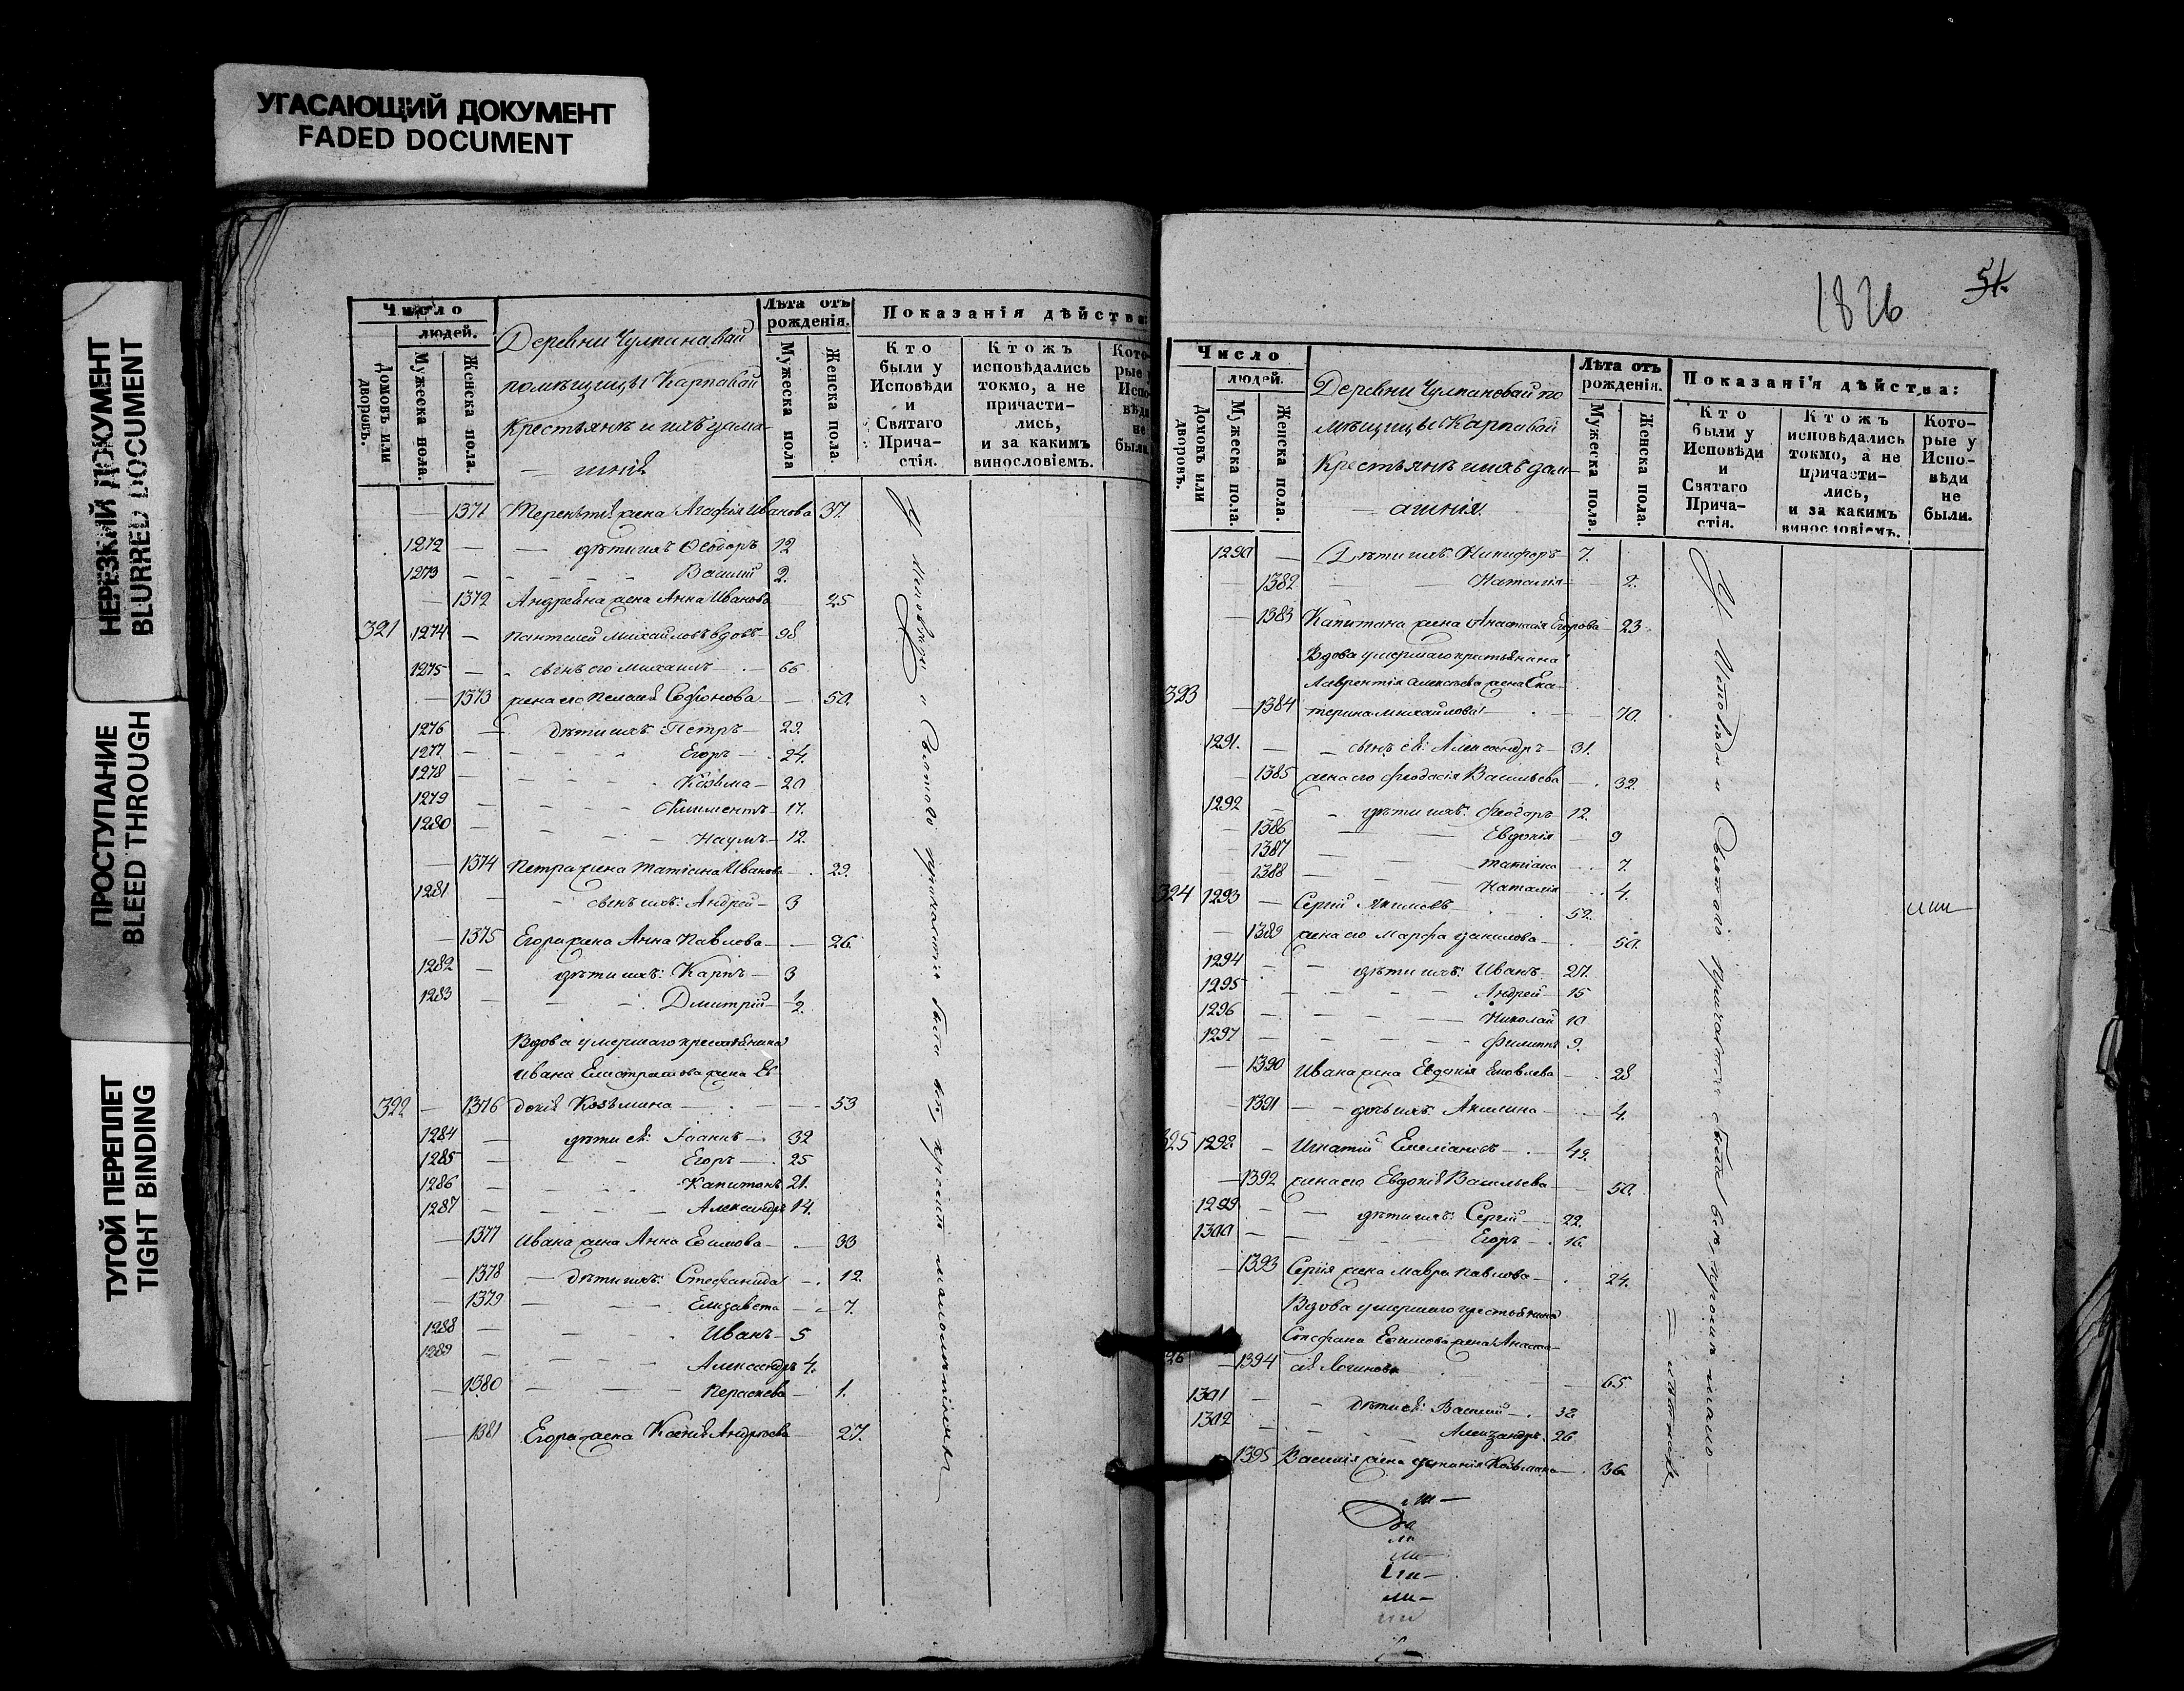 УГАСАЮЩИЙ ДОКУМЕНТ
FADED DOCUMENT
НЕРЕЗКИЙ ДОКУМЕНТ
BLURRED DOCUMENT
ПРОСТУПАНИЕ
BLEED THROUGH
ТУГОЙ ПЕРЕПЛЕТ
TIGHT BINDING
Число
людей.
Домовъ или дворовъ.
Мужеска пола.
Женска пола.
Деревни Чулпанавай
помѣщицы Карповой
Крестьянъ и ихъ дома-
шнія
Лѣта отъ рожденія.
Мужеска пола
Женска пола.
Показанія дѣйства:
Кто были у Исповѣди и Святаго Причастія.
Ктожъ исповѣдались токмо, а не причасти-лись, и за какимъ винословіемъ.
Кото-рые у Испо-вѣди не были.
1371 Терентія жена Агафія Иванова 37.
1272 — дѣти ихъ Ѳеодоръ 12
1273 — Василий 2.
1372 Андрея жена Анна Иванова 25
321 1274 — Пантелей Михайловъ вдовъ 98
1275 — сынъ его Михаилъ — 66
1373 жена его Пелагія Софонова — 50.
1276 — дѣти ихъ Петръ — 29.
1277 — Егоръ — 24.
1278 — Козьма — 20
1279 — Климентъ — 17.
1280 — Наумъ — 12.
1374 Петра жена Татіана Иванова 29.
1281 — сынъ ихъ: Андрей — 3
1375 Егора жена Анна Павлова — 26.
1282 — дѣти ихъ: Карпъ — 3
1283 — Дмитрій — 1/2.
Вдова умершаго крестьянина
Ивана Елистратова жена Ев-
322 — 1376 докія Козьмина — 53
1284 — дѣти ея: Іоаннъ — 32
1285 — Егоръ — 25
1286 — Капитонъ 21.
1287 — Александръ 14.
1377 Ивана жена Анна Ефимова — 33
1378 — дѣти ихъ: Стефанида — 12.
1379 — Елизавета — 7.
1288 — Иванъ — 5
1289 — Александръ 4.
1380 — Пераскева — 1.
1381 Егора жена Ксенія Андреева — 27.
1826
51.
Число
людей.
Домовъ или дворовъ.
Мужеска пола.
Женска пола.
Деревни Чулпановай по
мѣщицы Карповой
Крестьянъ и ихъ дом-
ашнія.
Лѣта отъ рожденія.
Мужеска пола.
Женска пола.
Показанія дѣйства:
Кто были у Исповѣди и Святаго Прича-стія.
Ктожъ исповѣдались токмо, а не причасти-лись, и за какимъ винословіемъ.
Кото-рые у Испо-вѣди не были.
1290 — Дѣти ихъ: Никифоръ 7.
1382 — Наталія — 2.
1383 Капитона жена Анастасія Егорова — 23
Вдова умершаго крестьянина
Лаврентія Алексѣева жена Ека-
323 — 1384 терина Михайлова — 70.
1291. — сынъ ея: Александръ — 31.
1385 жена его Феодосія Васильева — 32.
1292 — дѣти ихъ: Феодоръ 12.
1386 — Евдокія — 9
1387 — Татіана — 7.
1388 — Наталія — 4.
324 1293 — Сергій Якимовъ 52.
1389 жена его Марфа Данилова — 50.
1294 — дѣти ихъ: Иванъ — 27.
1295 — Андрей — 15
1296 — Николай 10
1297 — Филиппъ 9.
1390 Ивана жена Евдокія Яковлева — 28
1391 — дочь ихъ: Акилина — 4.
325 1298 — Игнатій Емеліановъ — 49.
1392 жена его Евдокія Васильева — 50.
1299 — дѣти ихъ: Сергій — 22.
1300 — Егоръ — 16.
1393 Сергія жена Мавра Павлова — 24.
Вдова умершаго крестьянина
Стефана Ефимова жена Анаста-
326 — 1394 сія Логинова — 65
1301 — дѣти ея: Василий — 38.
1302 — Александръ 26
1395 Василія жена Устинія Козьмина — 36